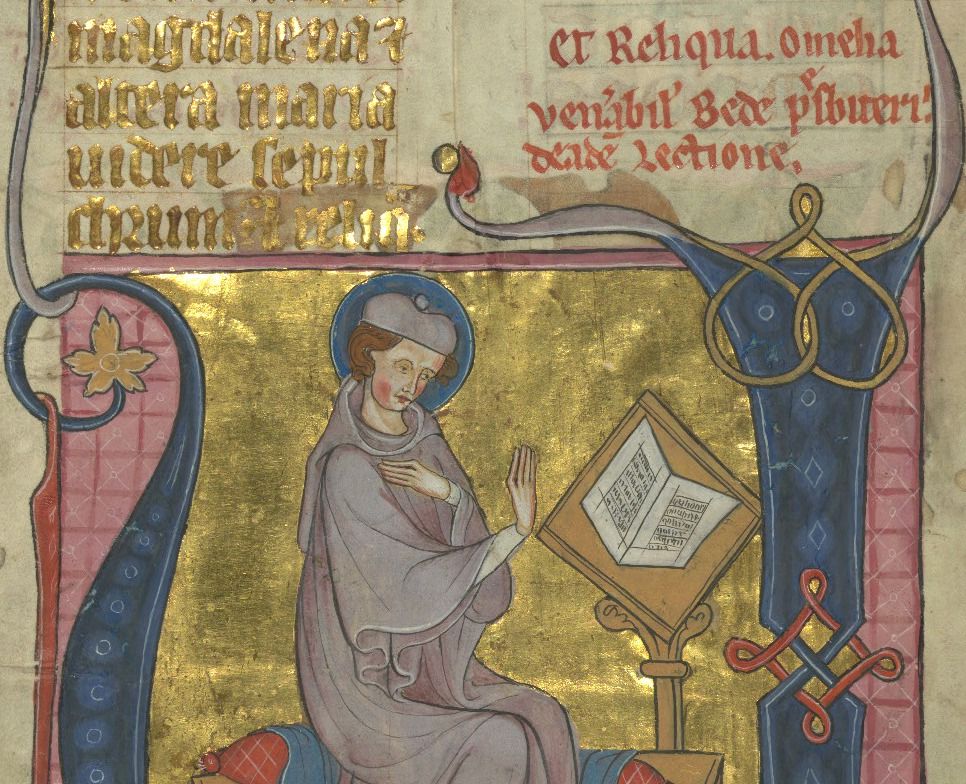 magdalena ⁊
altera maria
uidere sepul
chrum ⁊ reliq̄.
Et Reliqua. Omelia
ven͛abil' Bede p͛sbiteri.
de ead̄e lectione.